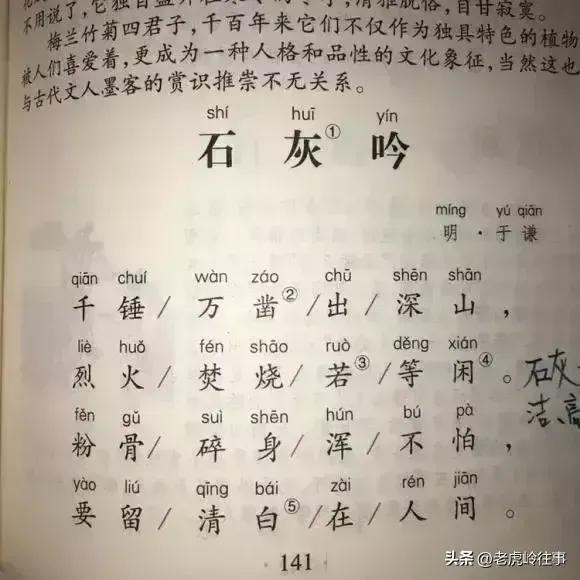 不用说了，它独自盛开在 的冬季，清雅脱俗，自甘寂寞。
梅兰竹菊四君子，千百年来它们不仅作为独具特色的植物
被人们喜爱着，更成为一种人格和品性的文化象征，当然这也
与古代文人墨客的赏识推崇不无关系。
shí huī yín
石 灰① 吟
míng yú qiān
明·于谦
qiān chuí wàn záo chū shēn shān
千锤/万凿②/出/深山，
liè huǒ fén shāo ruò děng xián
烈火/焚烧/若③/等闲④。
石灰
洁、高
fěn gǔ suì shēn hún bú pà
粉骨/碎身/浑/不怕，
yào liú qīng bái zài rén jiān
要留/清白⑤/在/人间。
·141·
头条 @老虎岭往事